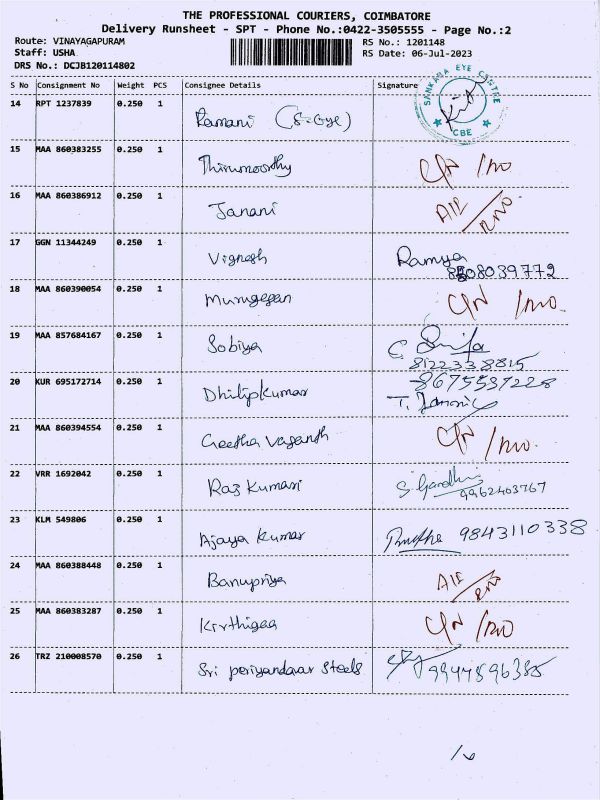 THE PROFESSIONAL COURIERS, COIMBATORE
Delivery Runsheet - SPT - Phone No.:0422-3505555 - Page No.:2
Route: VINAYAGAPURAM
Staff: USHA
DRS No.: DCJB120114802
RS No.: 1201148
RS Date: 06-Jul-2023
S No Consignment No Weight PCS Consignee Details Signature
SANKARA EYE CENTRE
CBE
14 RPT 1237839 0.250 1 Ramani (S-Eye)
15 MAA 860383255 0.250 1 Thirumoorthy
16 MAA 860386912 0.250 1 Janani
17 GGN 11344249 0.250 1 Vignesh Ramya
8508039772
18 MAA 860390054 0.250 1 Murugesan
19 MAA 857684167 0.250 1 Sobiya
8122338815
20 KUR 695172714 0.250 1 Dhilipkumar 8675537228
21 MAA 860394554 0.250 1 Geetha Vasanth
22 VRR 1692042 0.250 1 Raj Kumari S. Gandhi
9962403767
23 KLM 549806 0.250 1 Ajaya Kumar 9843110338
24 MAA 860388448 0.250 1 Banupriya
25 MAA 860383287 0.250 1 Kirthigaa
26 TRZ 210008570 0.250 1 Sri periyandavar steels 9944896385